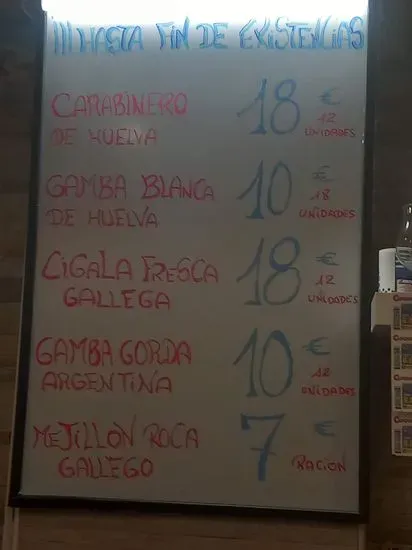 ¡¡¡HASTA FIN DE EXISTENCIAS
CARABINERO
DE HUELVA
18 €
12
UNIDADES
GAMBA BLANCA
DE HUELVA
10 €
18
UNIDADES
CIGALA FRESCA
GALLEGA
18 €
12
UNIDADES
GAMBA GORDA
ARGENTINA
10 €
12
UNIDADES
MEJILLON ROCA
GALLEGO
7 €
RACION